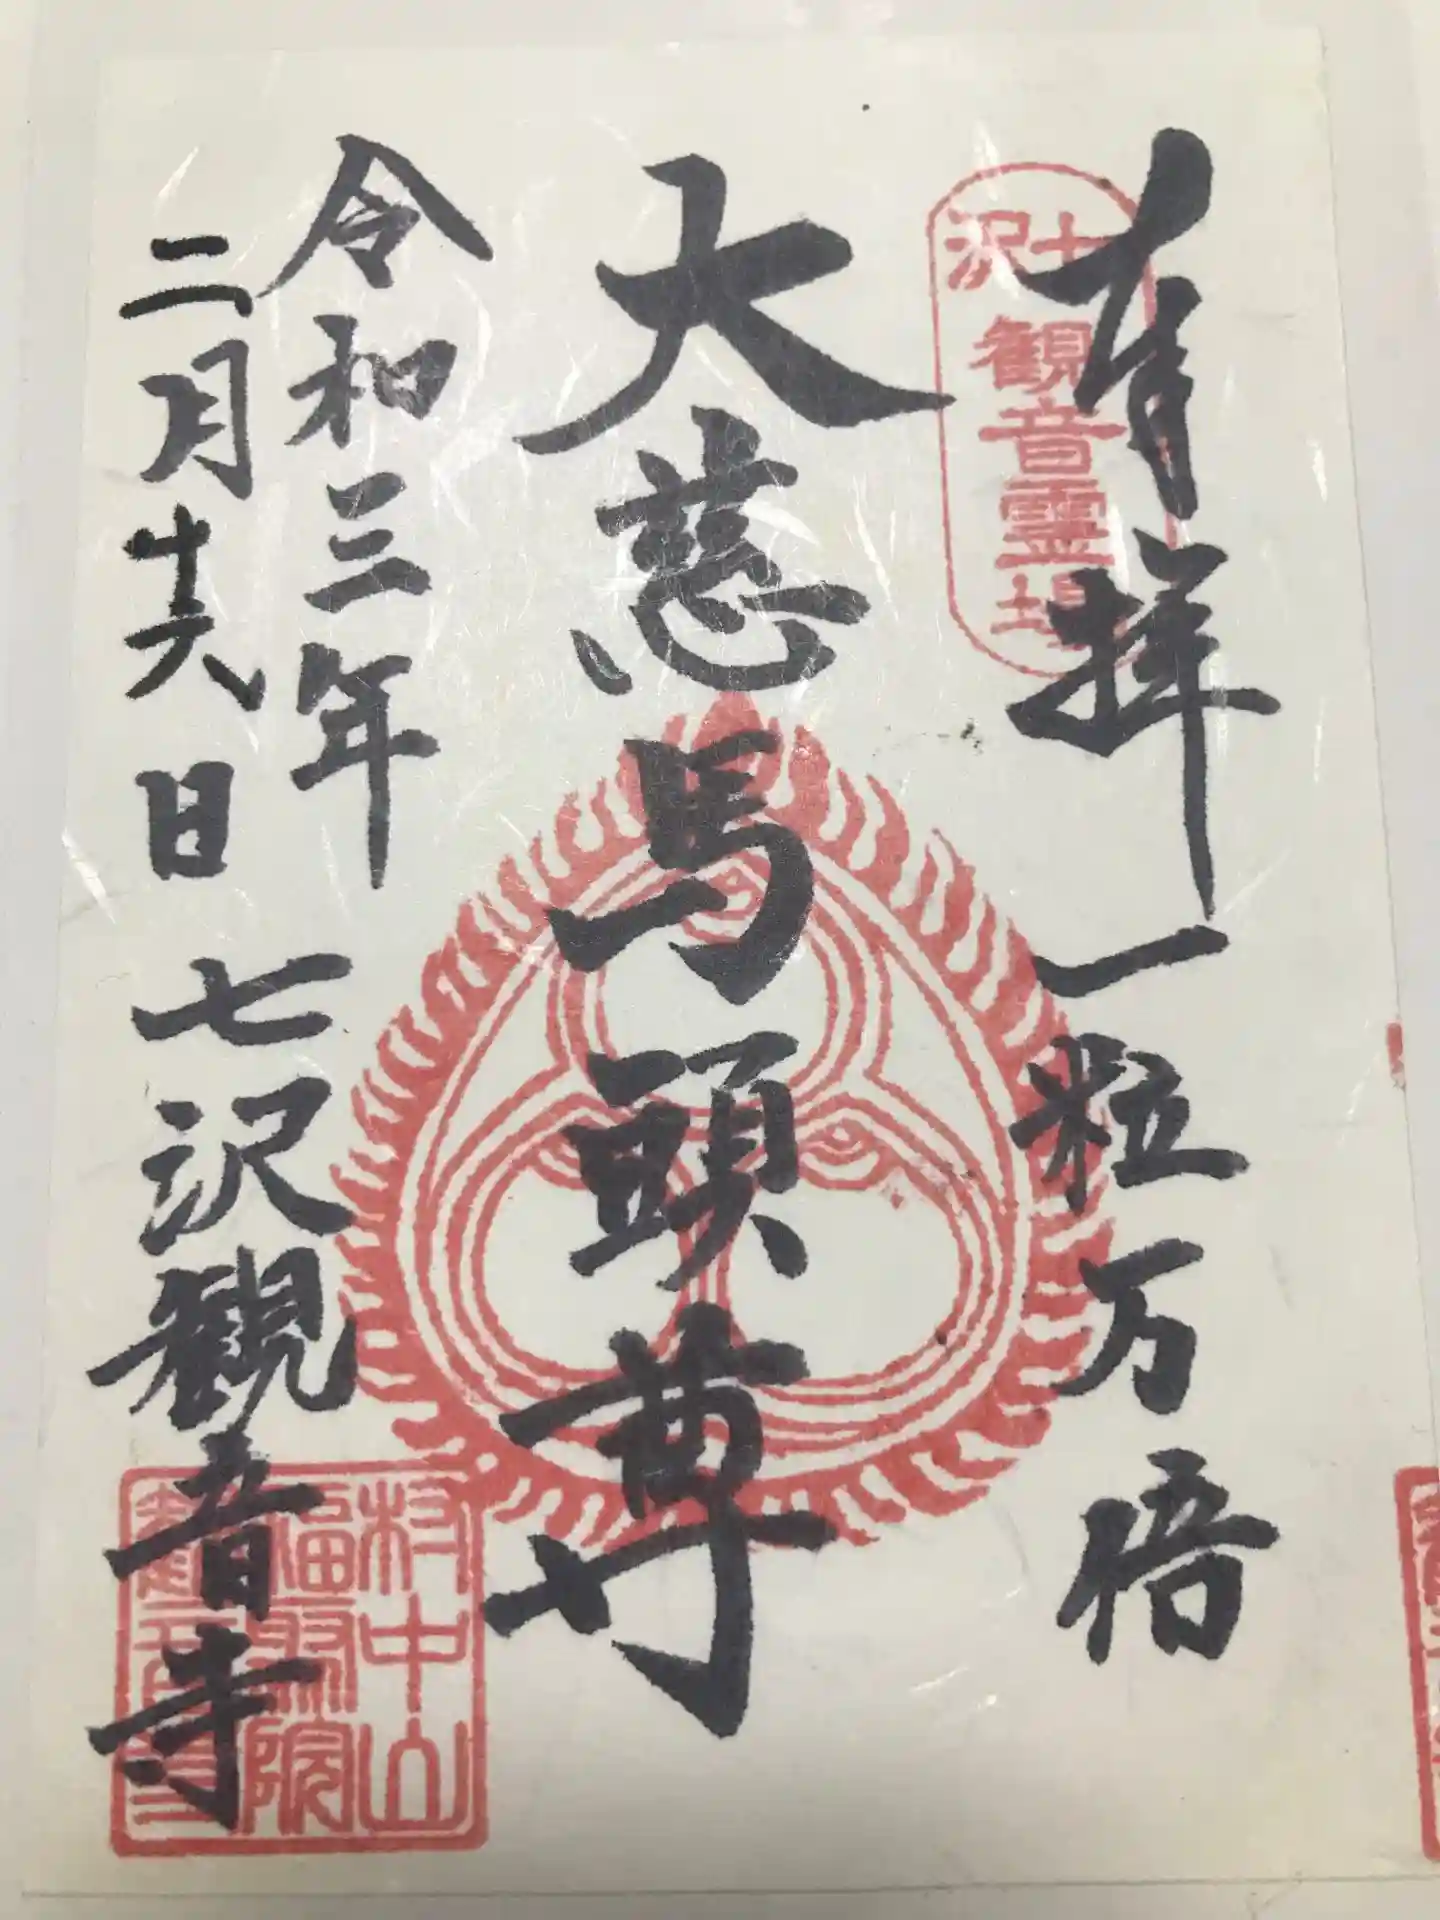 七沢
観音霊場
奉拝 一粒万倍
大慈馬頭尊
令和三年
二月廿六日 七沢観音寺
村中山
福聚院
観音寺